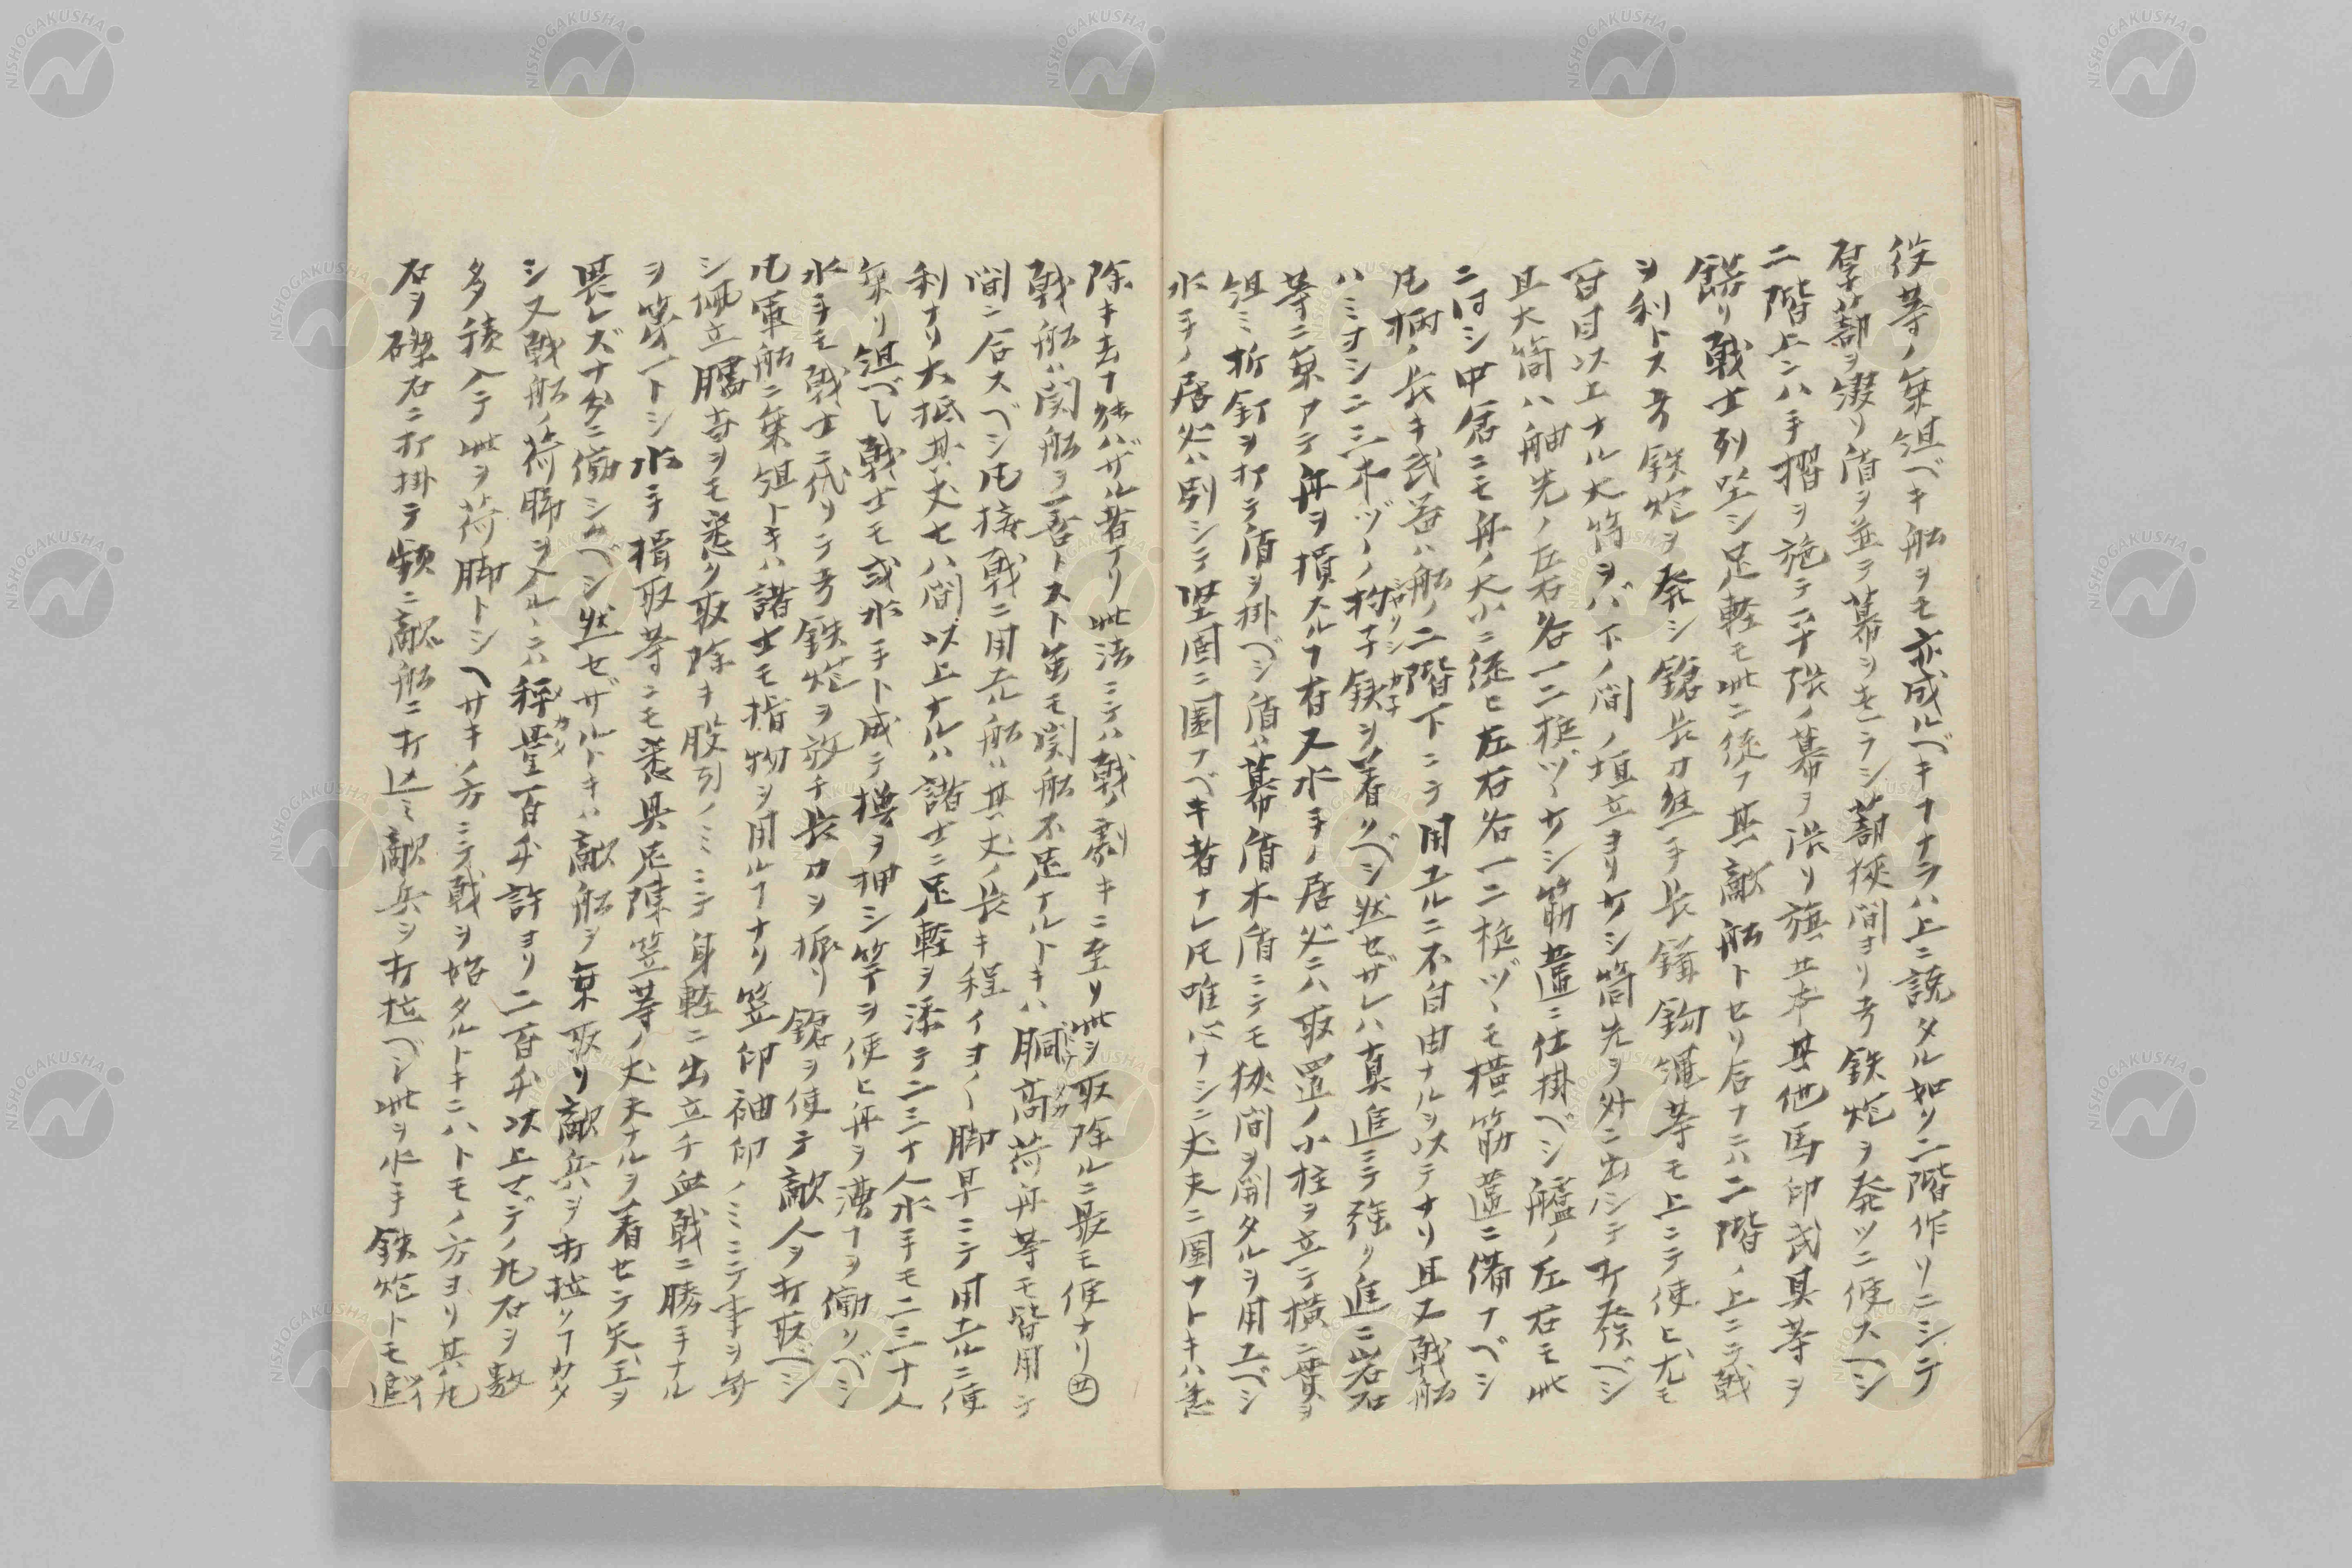 役等ノ乗組ベキ船ヲモ亦成ルベキヿナラハ上ニ説タル如ク二階作リニシテ
厚蔀ヲ綴リ盾ヲ並テ幕ヲ走ラシ蔀狭間ヨリ弓鉄炮ヲ発ツニ便スヘシ
二階上ニハ手摺ヲ施テ平張ノ幕ヲ張リ旗廿本其他馬印武具等ヲ
餝リ戦士列坐シ足軽モ此ニ従フ其敵船トセリ合ナニハ二階ノ上ニテ戦
ヲ利トス弓鉄炮ヲ発シ鎗長刀熊手長鎌鈎縄等モ上ニテ使ヒ尤モ
百目以上ナル大筒ヲバ下ノ間ノ垣立ヨリサシ筒先ヲ外ニ出シテ打発ベシ
且大筒ハ舳先ノ左右各一二挺ヅヽサシ筋違ニ仕掛ベシ艫ノ左右モ此
ニ同シ中倉ニモ舟ノ大小ニ従ヒ左右各一二挺ヅヽモ横筋違ニ備フベシ
凡柄ノ長キ武器ハ船ノ二階下ニテ用ユルニ不自由ナルヲ以テナリ且又戦船
ハミヨシニ三本ヅヽノ杓子鉄ヲ着クベシ然セザレハ真進ニテ強ク進ニ岩石
等ニ乗アテ舟ヲ損スルヿ有又水手ノ居処ニハ取置ノ小柱ヲ立テ横ニ貫ヲ
組ミ折釘ヲ打テ盾ヲ掛ベシ盾ハ幕盾木盾ニテモ狭間ヲ開タルヲ用ユベシ
水手ノ居処ハ別シテ堅固ニ圍フベキ者ナレ𪜈唯心ナシニ丈夫ニ圍フトキハ急
除キ去ヿ能ハザル者ナリ此法ニテハ戦ノ劇キニ至リ此ヲ取除ルニ最モ便ナリ㊃
戦船ハ関船ヲ善トスト雖モ関船不足ナルトキハ胴高荷舟等モ皆用テ
間ニ合スベシ凡接戦ニ用ル船ハ其丈ノ長キ程イヨ〱脚早ニテ用ユルニ便
利ナリ大抵其丈七八間以上ナルハ諸士ニ足軽ヲ添テ二三十人水手モ二三十人
乗リ組ベし戦士モ或水手ト成テ櫓ヲ押シ竿ヲ使ヒ舟ヲ漕ヿヲ働クベシ
水手モ戦士ニ代リテ弓鉄炮ヲ放チ長刀ヲ振リ鎗ヲ使テ敵人ヲ打取ベシ
凡軍船ニ乗組トキハ諸士モ指物ヲ用ルヿナク笠印袖印ノミニテ事ヲ弁
シ佩立臑当ヲモ悉ク取除キ股引ノミニテ身軽ニ出立チ血戦ニ勝手ナル
ヲ第一トシ水手楫取等ニモ悉具足陣笠等ノ丈夫ナルヲ着セテ矢玉ヲ
畏レズナダニ働シムベシ然セザルトキハ敵船ヲ乗取リ敵兵ヲ打拉クヿカタ
シ又戦船ノ荷脚ヲ入ルヽニハ秤量一百斤許ヨリ二百斤以上マデノ丸石ヲ数
多積入テ此ヲ荷脚トシヘサキノ方ニテ戦ヲ始タルトキニハトモノ方ヨリ其丸
石ヲ礫石ニ打掛テ頻ニ敵船ニ打込ミ敵兵ヲ打拉ベシ此ヲ水手鉄炮トモ